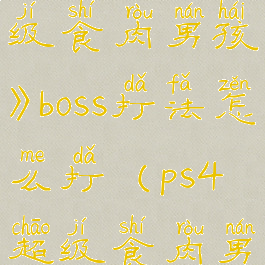 jí shí ròu nán hái
级食肉男孩
dǎ fǎ zěn
》boss打法怎
me dǎ
么打(ps4
chāo jí shí ròu nán
超级食肉男